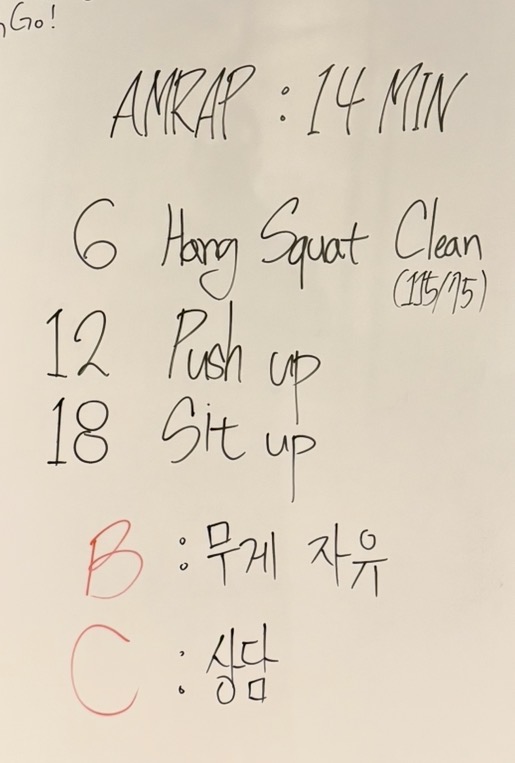 Go!
AMRAP : 14 MIN
6 Hang Squat Clean
(115/75)
12 Push up
18 Sit up
B : 무게 자유
C : 상담